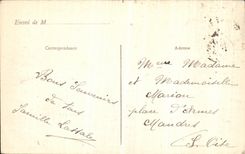 Envoi de M
Correspondance
Adresse
Bons Souvenirs
de tous
Famille
Mme Madame
et Mademoiselle
Marion
place d'Armes
Mandres
S. Oise